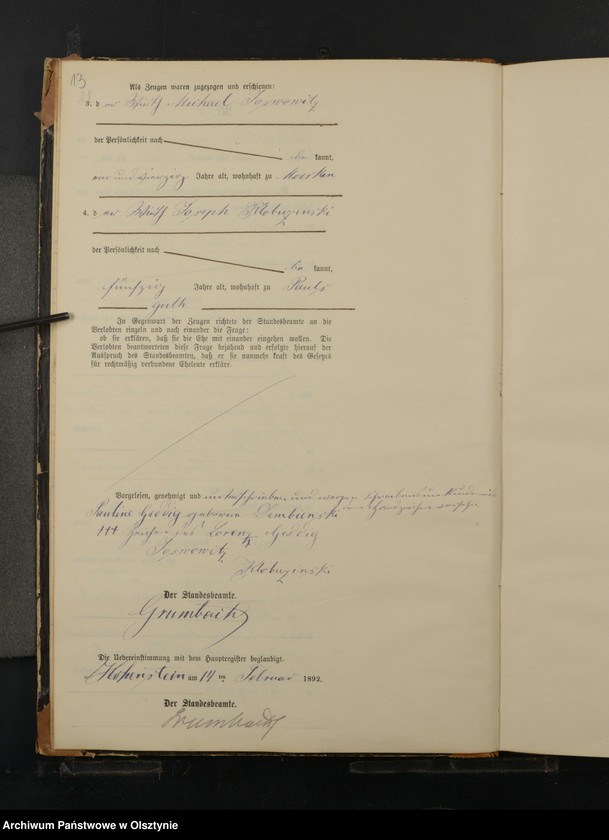 13
Als Zeugen waren zugezogen und erschienen:
3. d er Wirth Michael
der Persönlichkeit nach
be kannt,
ein und vierzig Jahre alt, wohnhaft zu
4. d er Wirth Joseph Klobuzenski
der Persönlichkeit nach
be kannt,
fünfzig Jahre alt, wohnhaft zu Pauls
guth
In Gegenwart der Zeugen richtete der Standesbeamte an die
Verlobten einzeln und nach einander die Frage:
ob sie erklären, daß sie die Ehe mit einander eingehen wollen. Die
Verlobten beantworteten diese Frage bejahend und erfolgte hierauf der
Ausspruch des Standesbeamten, daß er sie nunmehr kraft des Gesetzes
für rechtmäßig verbundene Eheleute erkläre.
Vorgelesen, genehmigt und unterschrieben und wegen Schreibensunkunde
Pauline Geddig geborene Dembienski
+++ Zeichen des Lorenz Geddig
Klobuzenski
Der Standesbeamte.
Grumbach
Die Uebereinstimmung mit dem Hauptregister beglaubigt.
Hohenstein am 14 ten Februar 1892.
Der Standesbeamte.
Grumbach
Archiwum Państwowe w Olsztynie